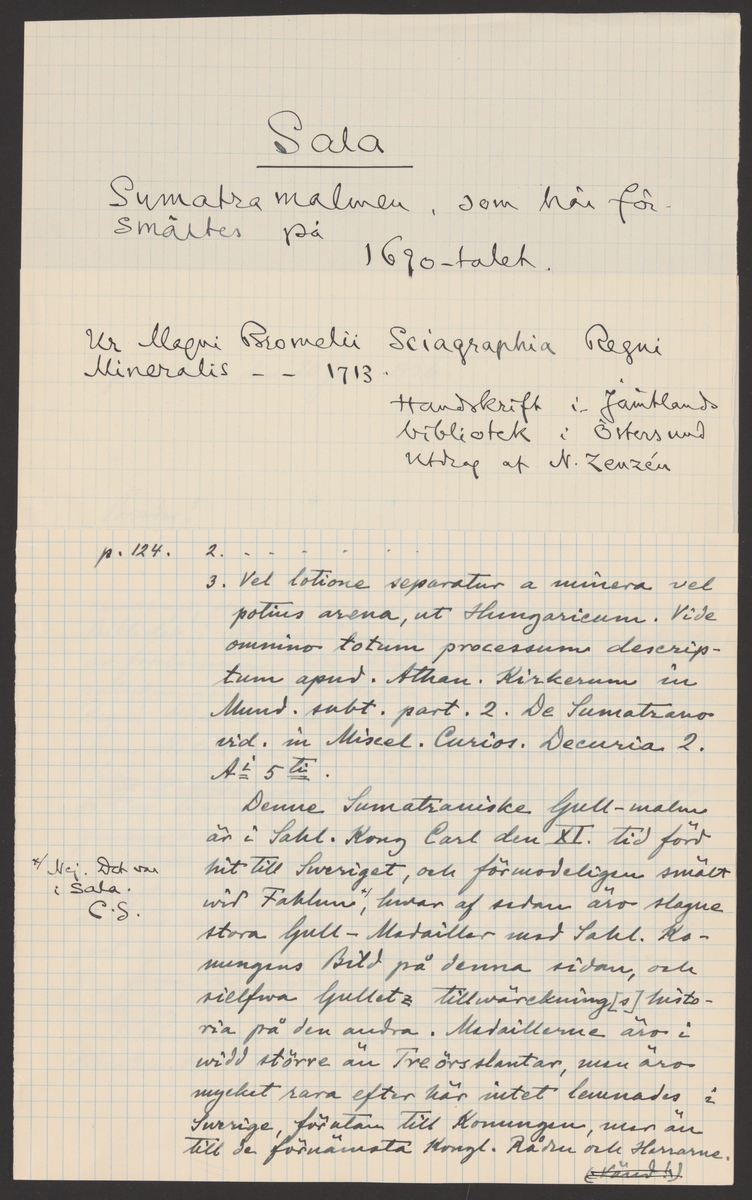 Sala
Sumatra malmen, som här för-
smältes på
1690-talet.
Ur Magni Bromelii Sciagraphia Regni
Mineralis - - 1713.
Handskrift i Jämtlands
bibliotek i Östersund
Utdrag af N. Zenzén
p. 124. 2. - - - - - -
3. Vel lotione separatur a minera vel
potius arena, ut Hungaricum. Vide
omnino totum processum descrip-
tum apud. Athan. Kirkerum in
Mund. subt. part. 2. De Sumatrano
vid. in Miscel. Curios. Decuria 2.
Ai 5ti.
Denne Sumatraniske Gull-malm
är i Sahl. Kong Carl den XI. tid förd
hit till Sweriget, och förmodeligen smält
wid Fahlun x/, hwar af sedan äro slagne
x/ Nej. Det var
i Sala.
C. S.
stora Gull-Medailler med Sahl. Ko-
nungens Bild på denna sidan, och
sielfwa Gulletz tillwärckning[s] histo-
ria på den andra. Medaillerne äro i
widd större än Treörsslantar, men äro
mycket rara efter här intet lemnades i
Swerige, förutan till Konungen, mer än
till de förnämsta Kongl. Råden och Herrarne.
(Vänd!)